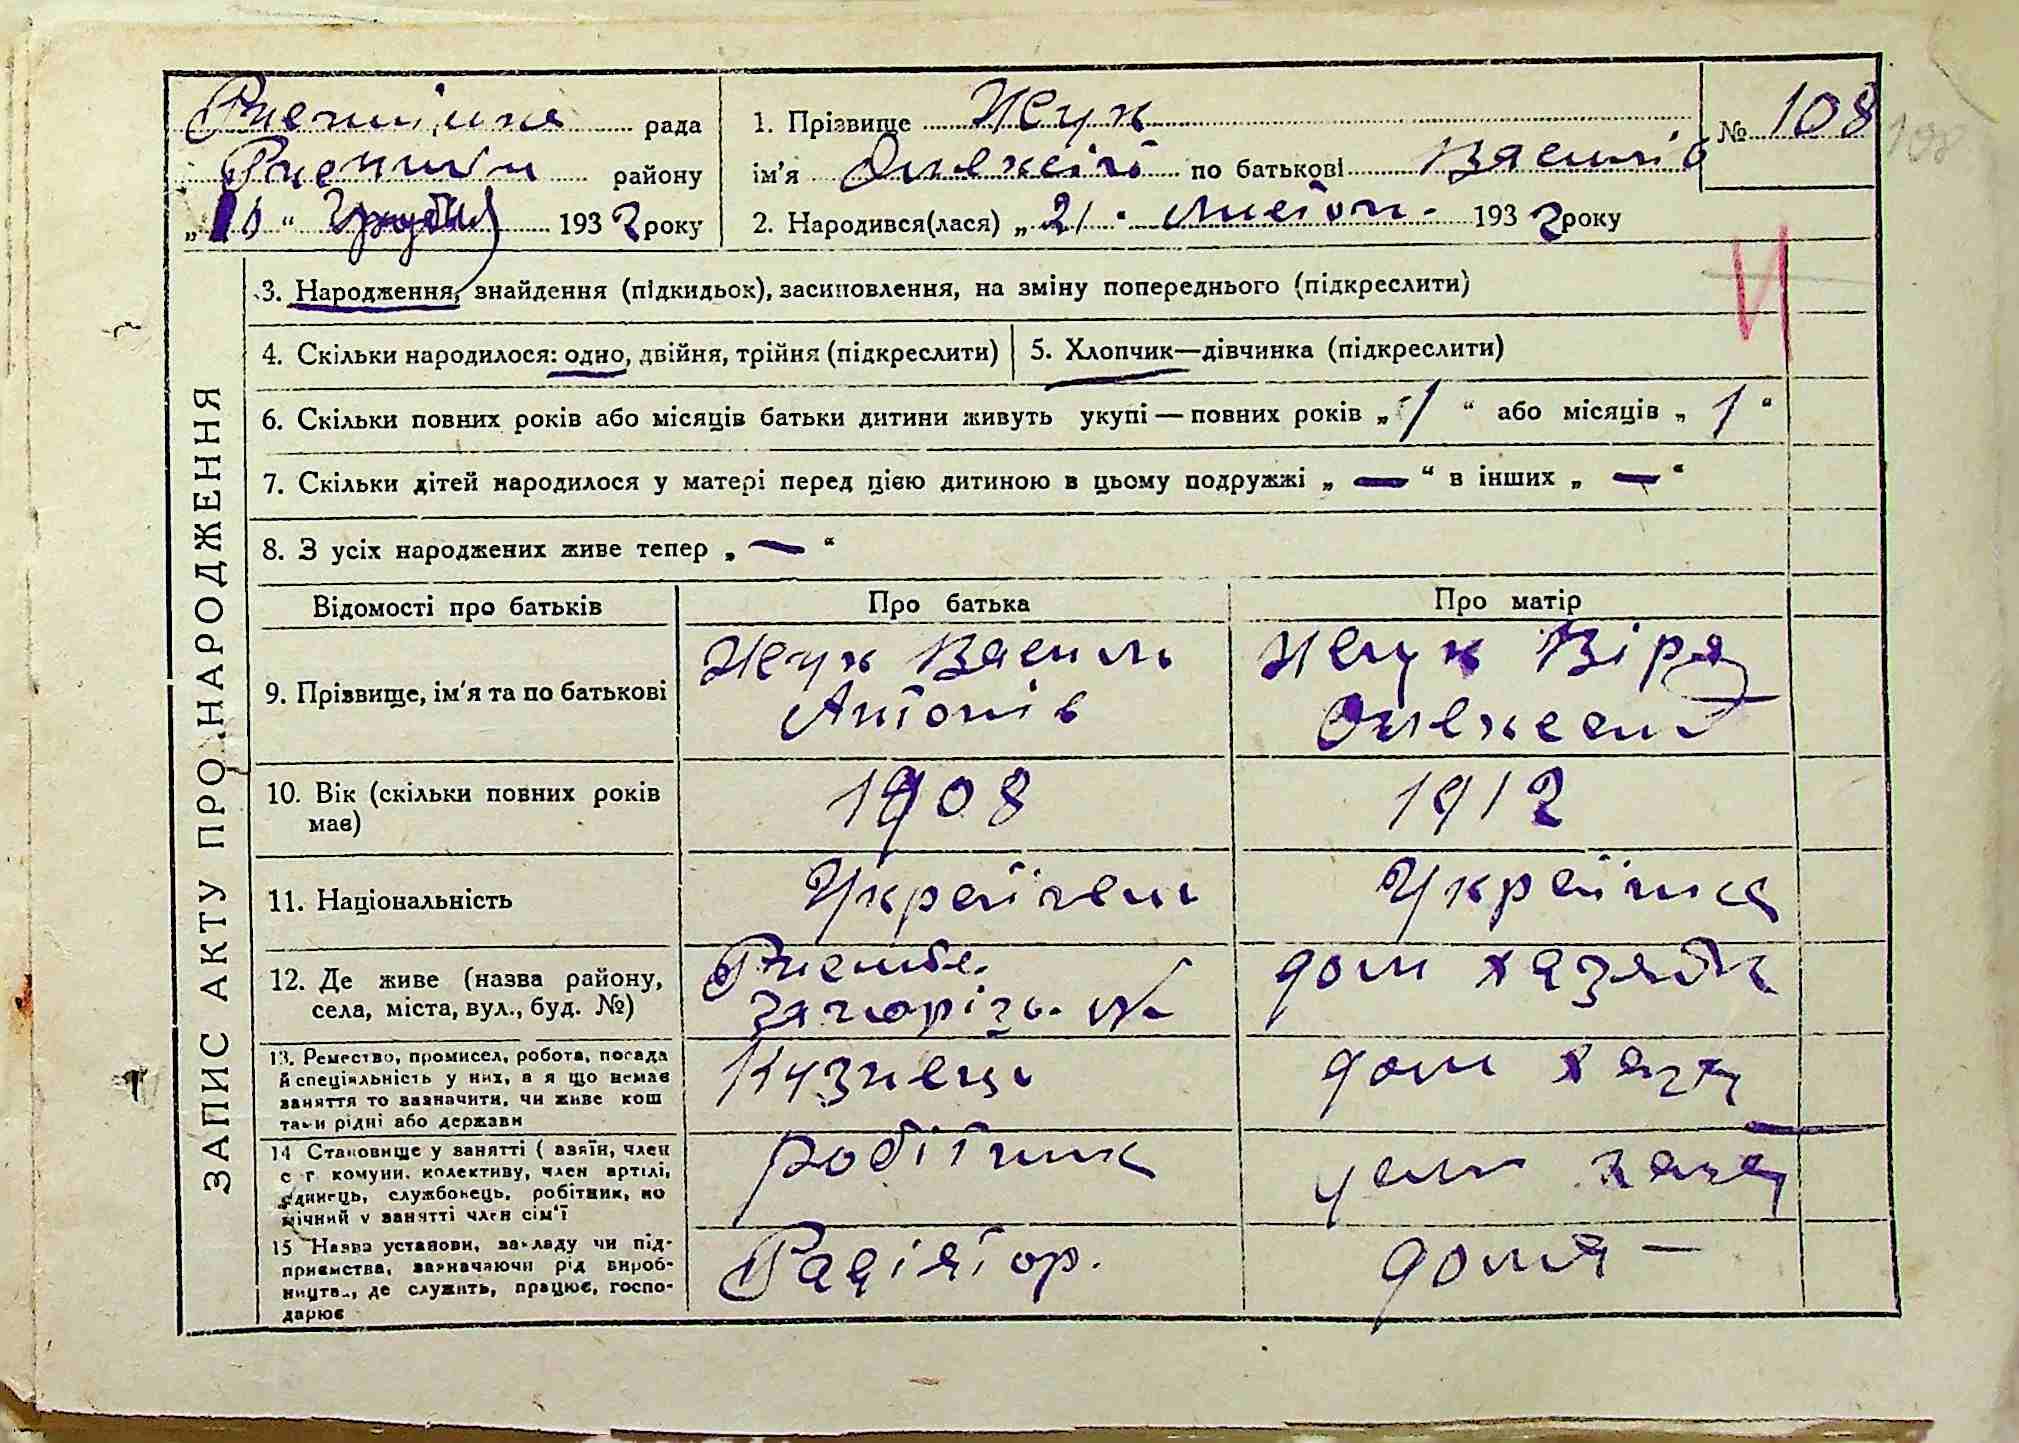 рада
району
„10“ Грудня 1932 року
1. Прізвище Жук
ім'я Олексій по батькові Василів
№ 108
108
2. Народився(лася) „21“ Листоп. 1932 року
ЗАПИС АКТУ ПРО НАРОДЖЕННЯ
3. Народження, знайдення (підкидьок), засиновлення, на зміну попереднього (підкреслити)
4. Скільки народилося: одно, двійня, трійня (підкреслити)
5. Хлопчик—дівчинка (підкреслити)
6. Скільки повних років або місяців батьки дитини живуть укупі — повних років „1“ або місяців „1“
7. Скільки дітей народилося у матері перед цією дитиною в цьому подружжі „—“ в інших „—“
8. З усіх народжених живе тепер „—“
Відомості про батьків Про батька Про матір
9. Прізвище, ім'я та по батькові
Жук Василь
Антонів
Жук Віра
10. Вік (скільки повних років
має)
1908
1912
11. Національність
Українець
Українка
12. Де живе (назва району,
села, міста, вул., буд. №)
дом хазяйк
13. Ремество, промисел, робота, посада
й спеціяльність у них, а я що немає
заняття то зазначити, чи живе кош
тами рідні або держави
Кузнець
дом хазя
14 Становище у занятті ( хазяїн, член
с г комуни, колективу, член артілі,
одинець, службовець, робітник, по
мічний у занятті член сім'ї
робітник
хазя
15 Назва установи, закладу чи під-
приємства, зазначаючи рід вироб-
ництв., де служить, працює, госпо-
дарює
Радіятор.
дома —